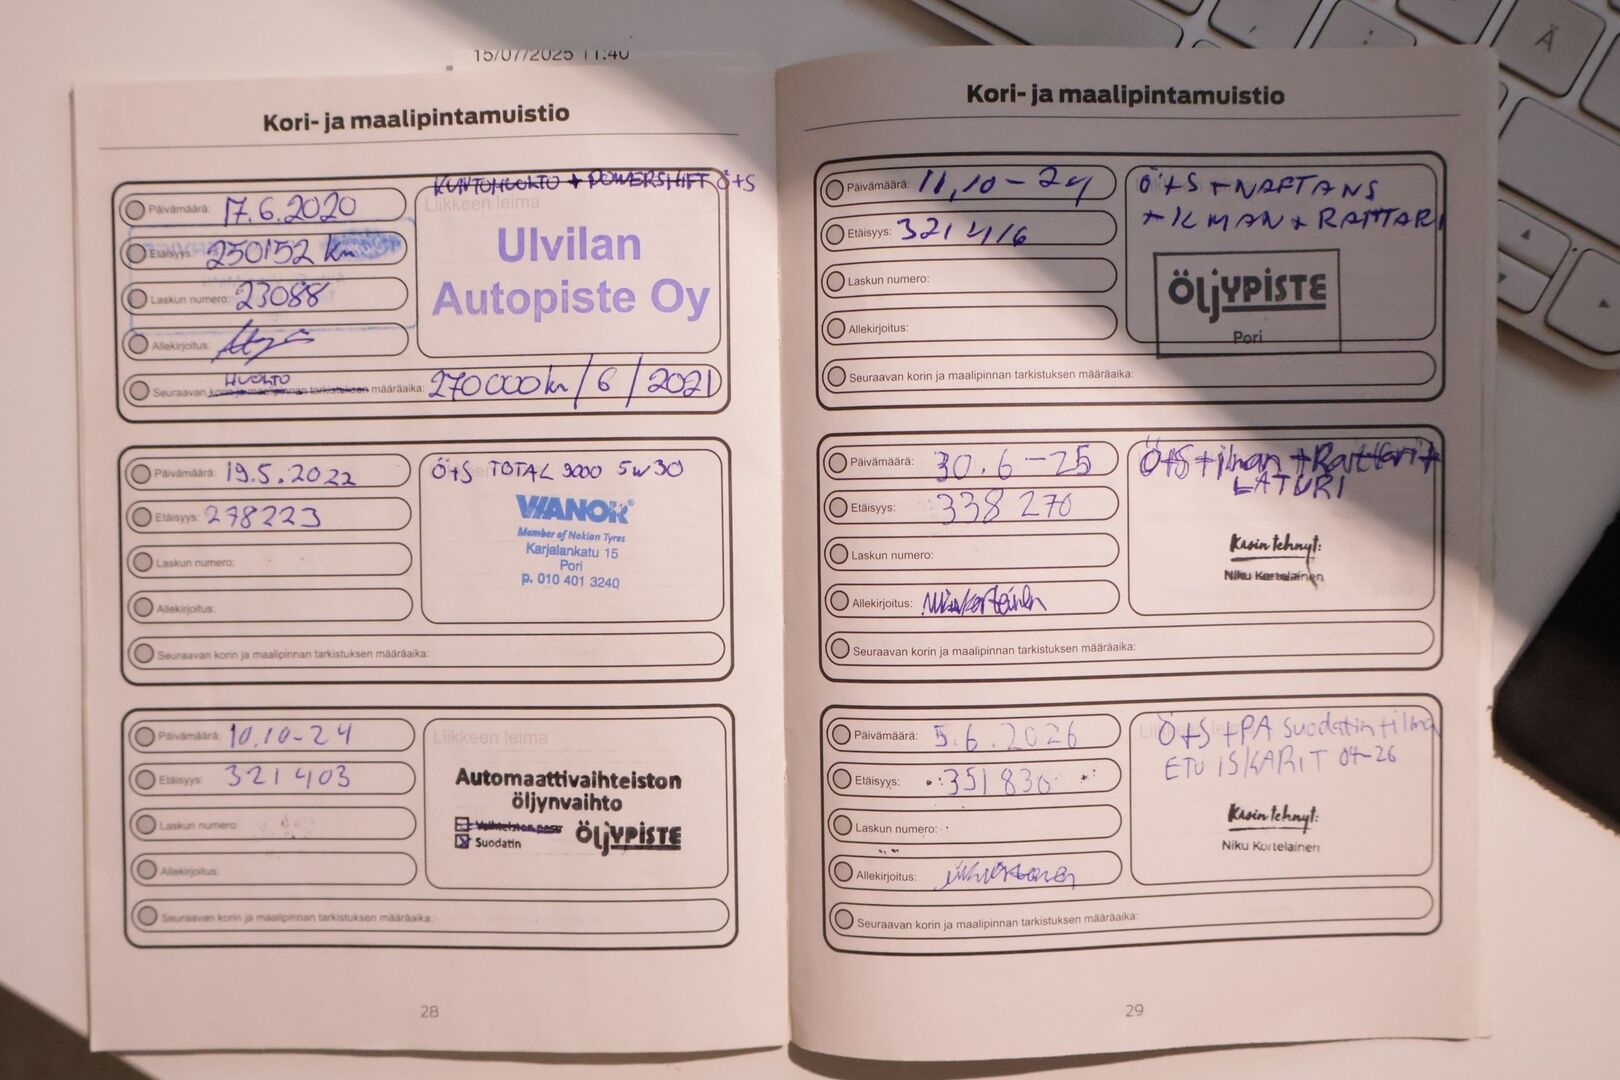 15/07/2025 11:40
Kori- ja maalipintamuistio
KUNTOHUOLTO + POWERSHIFT Ö+S
Päivämäärä: 17.6.2020
Liikkeen leima
Etäisyys: 250152 km
Ulvilan
Autopiste Oy
Laskun numero: 23088
Allekirjoitus:
HUOLTO
Seuraavan korin ja maalipinnan tarkistuksen määräaika: 270000 km / 6 / 2021
Päivämäärä: 19.5.2022
Ö+S TOTAL 9000 5W30
Etäisyys: 278223
VIANOR
Member of Nokian Tyres
Karjalankatu 15
Pori
p. 010 401 3240
Laskun numero:
Allekirjoitus:
Seuraavan korin ja maalipinnan tarkistuksen määräaika:
Päivämäärä: 10.10-24
Liikkeen leima
Etäisyys: 321403
Automaattivaihteiston
öljynvaihto
Vaihteiston pesu
Suodatin
ÖLJYPISTE
Laskun numero:
Allekirjoitus:
Seuraavan korin ja maalipinnan tarkistuksen määräaika:
28
Kori- ja maalipintamuistio
Päivämäärä: 11,10-24
Ö+S +
Etäisyys: 321416
ÖLJYPISTE
Pori
Laskun numero:
Allekirjoitus:
Seuraavan korin ja maalipinnan tarkistuksen määräaika:
Päivämäärä: 30.6-25
Ö+S+ilman+Raitteri+
LATURI
Etäisyys: 338 270
Laskun numero:
Ksoin tehnyt:
Niku Kortelainen
Allekirjoitus:
Seuraavan korin ja maalipinnan tarkistuksen määräaika:
Päivämäärä: 5.6.2026
Ö+S +PA suodatin + ilma
ETU ISKARIT 04-26
Etäisyys: 351830
Laskun numero:
Ksoin tehnyt:
Niku Kortelainen
Allekirjoitus:
Seuraavan korin ja maalipinnan tarkistuksen määräaika:
29
Ä